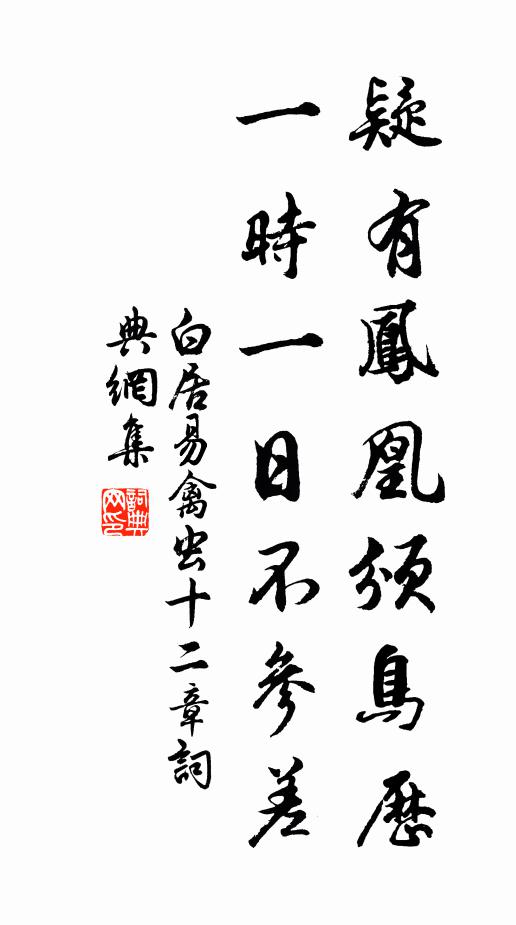 疑有鳳凰頒鳥歷
一時一日不參差
白居易禽虫十二章詞
典網集
詞典網印